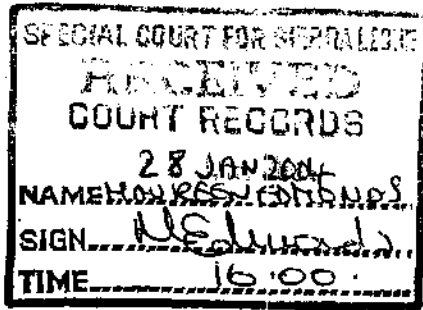 SPECIAL COURT FOR SIERRA LEONE
RECEIVED
COURT RECORDS
28 JAN 2004
NAME EDMONDS
SIGN
TIME 16:00.